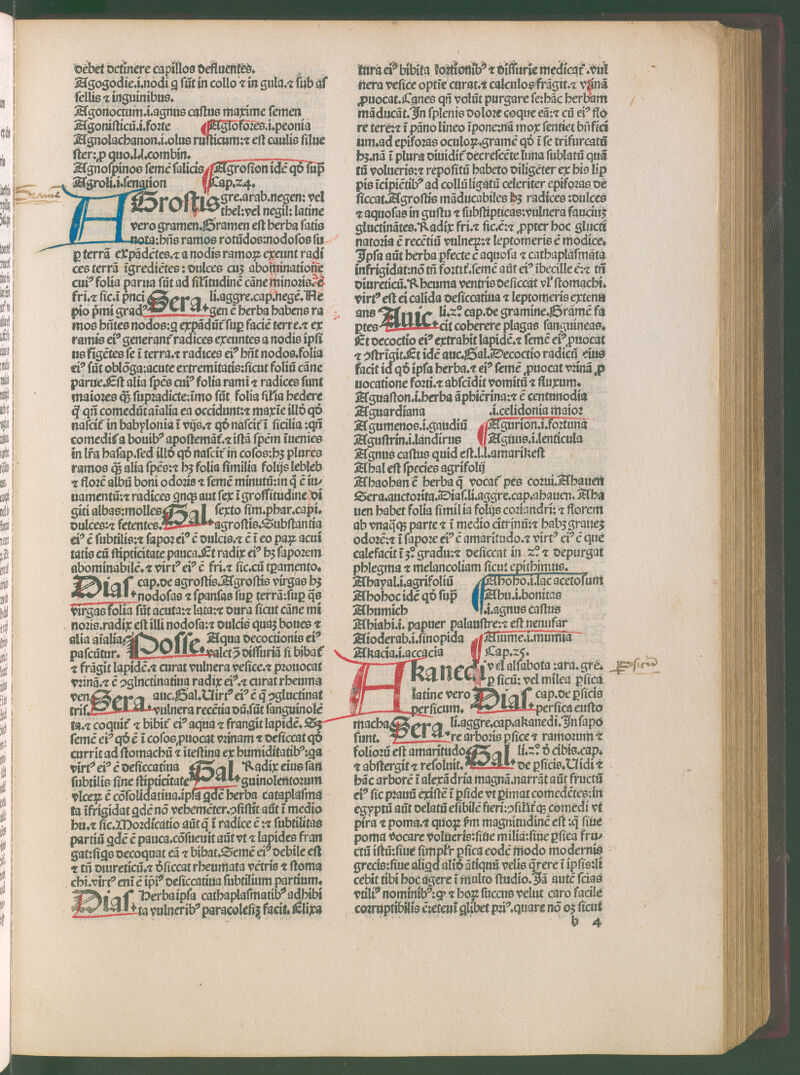 debet detinere capillos defluentes.
Agogodie .i. nodi q̄ sūt in collo ⁊ in gula. ⁊ sub as
sellis ⁊ inguinibus.
Agonoctum .i. agnus castus maxime semen
Agonisticū .i. forte
Aglofores .i. peonia
Agnolachanon .i. olus rusticum: ⁊ est caulis silue
ster: ꝓ quo .l.l. combin.
Agnospinos semē salicis
Agrosion idē qð sup̄
Agroli .i. senation
Cap. 24.
Gramē
AGrostis gre. arab. negen: vel
thel: vel negil: latine
vero gramen. Gramen est herba satis
nota: hn̄s ramos rotūdos: nodosos su
ꝑ terrā expādētes. ⁊ a nodis ramoꝝ exeunt radi
ces terrā īgrediētes: dulces cuȝ abominatione
cuiꝰ folia parua sūt ad sil'itudinē cāne minoris. ē
fri. ⁊ sic. in pn̄ci
pio pi̅mi gradꝰ
Sera. li. aggre. cap. negē. Ne
gen ē herba habens ra
mos hn̄tes nodos: q̄ expādūt' sup faciē terre. ⁊ ex
ramis eiꝰ generant' radices exeuntes a nodis ipsi
us figētes se ī terra. ⁊ radices eiꝰ hn̄t nodos. folia
eiꝰ sūt oblōga: acute extremitatis: sicut foliū cāne
parue. Est alia spēs cuiꝰ folia rami ⁊ radices sunt
maiores q̄ȝ supradicte: imo sūt folia sil'ia hedere
q̄ qn̄ comedūt aīalia ea occidunt: ⁊ maxīe illō qð
nascit' in babylonia ī vijs. ⁊ qð nascit' ī sicilia: qn̄
comedit' a bouibꝰ apostemāt. ⁊ istā spēm īuenies
in lr̄a hasap. sed illō qð nascit' in cosos: hȝ plures
ramos q̄ȝ alia spēs: ⁊ hȝ folia similia folijs lebleb
⁊ florē albū boni odoris ⁊ semē minutū: in q̄ ē iu-
uamentū: ⁊ radices qnqȝ aut sex ī grossitudine di
giti albas: molles
dulces: ⁊ fetentes.
Gal. sexto sim. phar. capi.
agrostis. Substantia
eiꝰ ē subtilis: ⁊ sapor eiꝰ ē dulcis. ⁊ ē ī eo paꝝ acui
tatis cū stipticitate pauca. Et radix eiꝰ hȝ saporem
abominabilē. ⁊ virtꝰ eiꝰ ē fri. ⁊ sic. cū tp̄amento.
Dias. cap. de agrostis. Agrostis virgas hȝ
nodosas ⁊ spansas sup terrā: sup q̄s
virgas folia sūt acuta: ⁊ lata: ⁊ dura sicut cāne mi
noris. radix est illi nodosa: ⁊ dulcis quaȝ boues ⁊
alia aīalia
pascūtur.
Posse. Aqua decoctionis eiꝰ
valet ʒ dissuriā si bibat'
⁊ frāgit lapidē. ⁊ curat vulnera vesice. ⁊ prouocat
vrinā. ⁊ ē ꝯglutinatiua radix eiꝰ. ⁊ curat rheuma
ven
tris.
Sera. auc. Gal. Virtꝰ eiꝰ ē q̄ ꝯglutinat
vulnera recētia dū. sūt sanguinolē
ta. ⁊ coquit' ⁊ bibit' eiꝰ aqua ⁊ frangit lapidē. Sȝ
semē eiꝰ qð ē ī cosos prouocat vrinam ⁊ desiccat qð
currit ad stomachū ⁊ ītestina ex humiditatibꝰ: ga
virtꝰ eiꝰ ē desiccatiua
subtilis sine stipticitate
Gal. Radix eius san
guinolentorum
vlceꝝ ē ꝯsolidatiua. ipsa qdē herba cataplasma
ta īfrigidat qdē nō vehemēter. ꝯsistit aūt ī medio
hu. ⁊ sic. Mordicatio aūt q̄ ī radice ē: ⁊ subtilitas
partiū qdē ē pauca. cōsueuit aūt vt ⁊ lapides fran
gat: siqs decoquat eā ⁊ bibat. Semē eiꝰ debile est
⁊ tn̄ diureticū. ⁊ desiccat rheumata vētris ⁊ stoma
chi. virtꝰ eni ē ip̄iꝰ desiccatiua subtilium partium.
Dias. Herba ipsa cathaplasmatibꝰ adhibi
ta vulneribꝰ paracolesiȝ facit. Elixa
tura eiꝰ bibita tortionibꝰ ⁊ dissurie medicat'. vul
nera vesice optie curat. ⁊ calculos frāgit. ⁊ vrinā
ꝓuocat. Canes qn̄ volūt purgare se: hāc herbam
māducāt. In splenis dolore coque eā: ⁊ cū eiꝰ flo
re tere: ⁊ ī pāno lineo īpone: nā mox sentiet bn̄fici
um. ad epiforas oculoꝝ. gramē qð ī se trifurcatū
hȝ. nā ī plura diuidit' decrescēte luna sublatū quā
tū volueris: ⁊ repositū habeto diligēter ex his lip
pis īcipiētibꝰ ad collū ligatū celeriter epiforas de
siccat. Agrostis māducabiles hȝ radices: dulces
⁊ aquosas in gustu ⁊ substipticas: vulnera fauciuȝ
glutinātes. Radix fri. ⁊ sic. ē: ⁊ ꝓpter hoc glucti
natoria ē recētiū vulneꝝ: ⁊ leptomeris ē modice.
Ipsa aūt herba pfecte ē aquosa ⁊ cathaplasmata
infrigidat: nō tn̄ fortit'. semē aūt eiꝰ ībecille ē: ⁊ tn̄
diureticū. Rheuma ventris desiccat vl' stomachi.
virtꝰ est ei calida desiccatiua ⁊ leptomeris extenu
ans
ptes
Auic. li. 2.º cap. de gramine. Gramē fa
cit coherere plagas sanguineas.
Et decoctio eiꝰ extrahit lapidē. ⁊ semē eiꝰ ꝓuocat
⁊ ꝯstrigit. Et idē auc. Gal. Decoctio radicū eius
facit id qð ipsa herba. ⁊ eiꝰ semē ꝓuocat vrinā ꝓ
uocatione forti. ⁊ abscidit vomitū ⁊ fluxum.
Aguaston .i. herba āphicrina: ⁊ ē centunodia
Aguardiana .i. celidonia maior
Agumenos .i. gaudiū
Agurion .i. fortuna
Agustrin .i. landirus
Agius .i. lenticula
Agnus castus quid est .l.l. amarikest
Ahal est species agrifolij
Ahaohan ē herba q̄ vocat' pes corui. Ahauen
Sera. auctorita. Dias. li. aggre. cap. ahauen. Aha
uen habet folia similia folijs coriandri: ⁊ florem
ab vnaq̄qȝ parte ⁊ ī medio citrinū: ⁊ habȝ graueȝ
odorē: ⁊ ī sapore eiꝰ ē amaritudo. ⁊ virtꝰ eiꝰ ē que
calefacit ī 3.º gradu: ⁊ desiccat in 2.º ⁊ depurgat
phlegma ⁊ melancoliam sicut epithimus.
Ahayal .i. agrifoliū
Ahoho .i. lac acetosum
Ahohoc idē qð sup̄
Ahu .i. bonitas
Ahumich .i. agnus castus
Ahiahi .i. papuer palaustre: ⁊ est nenufar
Aioderab .i. sinopida
Aiume .i. mumia
Akacia .i. accacia
Cap. 25.
Psicū
AKanedi vel alsabota: ara. gre.
ꝑsicū: vel milea ꝑsica
latine vero
persicum.
Dias. cap. de ꝑsicis
persica eusto
macha
sunt.
Sera. li. aggre. cap. akanedi. In sapo
re arboris ꝑsice ⁊ ramorum ⁊
foliorū est amaritudo
⁊ abstergit ⁊ resoluit.
Gal. li. 2.º ð cibis. cap.
de ꝑsicis. Uidi ⁊
hāc arborē ī alexādria magnā. narrāt aūt fructū
eiꝰ sic prauū existē ī ꝑside vt ꝑimat comedētes: in
egyptū aūt delatū esibilē fieri: ꝯsil'itqȝ comedi vt
pira ⁊ poma. ⁊ quoꝝ fm magnitudinē est: q̄ siue
poma vocare volueris: siue milia: siue ꝑsica fru-
ctū istū: siue simplr̄ ꝑsica eodē modo modernis
grecis: siue aliqd aliō ātiquū velis q̄rere ī ipsis: li
cebit tibi hoc agere ī multo studio. Iā autē scias
vtiliꝰ nominibꝰ: ꝙ ⁊ hoꝝ succus velut caro facile
corruptibilis ē: etenī qlibet priꝰ. quare nō oȝ sicut
b 4